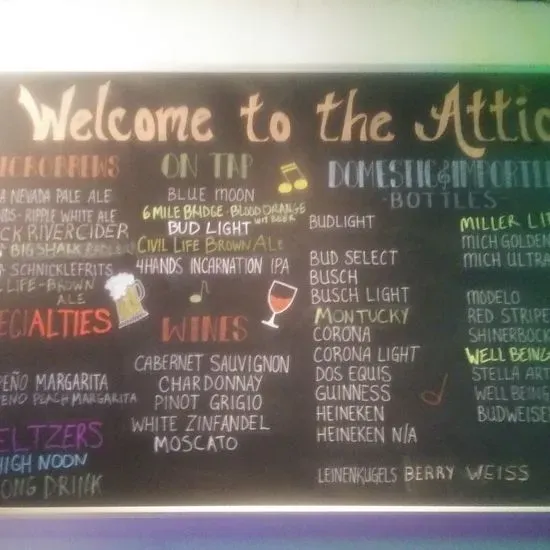 Welcome to the Attic
MICROBREWS
NEVADA PALE ALE
RIPPLE WHITE ALE
RIVER CIDER
BIG SHARK
SCHNICKLEFRITS
LIFE-BROWN
ALE
SPECIALTIES
PEÑO MARGARITA
PEÑO PEACH MARGARITA
SELTZERS
HIGH NOON
LONG DRINK
ON TAP
BLUE MOON
6 MILE BRIDGE - BLOOD ORANGE
WIT BEER
BUD LIGHT
CIVIL LIFE BROWN ALE
4HANDS INCARNATION IPA
WINES
CABERNET SAUVIGNON
CHARDONNAY
PINOT GRIGIO
WHITE ZINFANDEL
MOSCATO
DOMESTIC & IMPORTED
-BOTTLES-
BUDLIGHT
BUD SELECT
BUSCH
BUSCH LIGHT
MONTUCKY
CORONA
CORONA LIGHT
DOS EQUIS
GUINNESS
HEINEKEN
HEINEKEN N/A
LEINENKUGELS BERRY WEISS
MILLER LIT
MICH GOLDEN
MICH ULTRA
MODELO
RED STRIPE
SHINERBOCK
WELL BEING
STELLA ART
WELL BEING
BUDWEISE